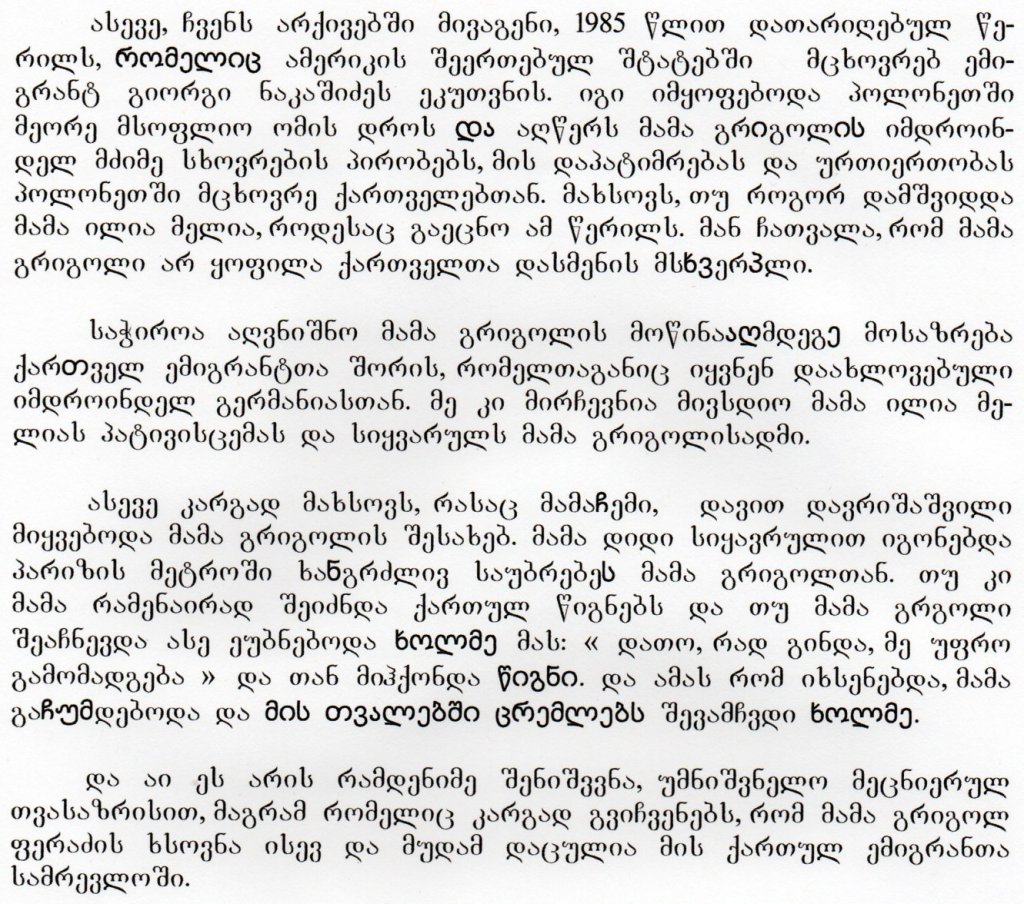 ასევე, ჩვენს არქივებში მივაგენი, 1985 წლით დათარიღებულ წე-
რილს, რომელიც ამერიკის შეერთებულ შტატებში მცხოვრებ ემი-
გრანტ გიორგი ნაკაშიძეს ეკუთვნის. იგი იმყოფებოდა პოლონეთში
მეორე მსოფლიო ომის დროს და აღწერს მამა გრიგოლის იმდროინ-
დელ მძიმე სხოვრების პირობებს, მის დაპატიმრებას და ურთიერთობას
პოლონეთში მცხოვრე ქართველებთან. მახსოვს, თუ როგორ დამშვიდდა
მამა ილია მელია, როდესაც გაეცნო ამ წერილს. მან ჩათვალა, რომ მამა
გრიგოლი არ ყოფილა ქართველთა დასმენის მსხვერპლი.

საჭიროა აღვნიშნო მამა გრიგოლის მოწინააღმდეგე მოსაზრება
ქართველ ემიგრანტთა შორის, რომელთაგანიც იყვნენ დაახლოვებული
იმდროინდელ გერმანიასთან. მე კი მირჩევნია მივსდიო მამა ილია მე-
ლიას პატივისცემას და სიყვარულს მამა გრიგოლისადმი.

ასევე კარგად მახსოვს, რასაც მამაჩემი, დავით დავრიშაშვილი
მიყვებოდა მამა გრიგოლის შესახებ. მამა დიდი სიყავრულით იგონებდა
პარიზის მეტროში ხანგრძლივ საუბრებეს მამა გრიგოლთან. თუ კი
მამა რამენაირად შეიძნდა ქართულ წიგნებს და თუ მამა გრგოლი
შეაჩნევდა ასე ეუბნებოდა ხოლმე მას: « დათო, რად გინდა, მე უფრო
გამომადგება » და თან მიჰქონდა წიგნი. და ამას რომ იხსენებდა, მამა
გაჩუმდებოდა და მის თვალებში ცრემლებს შევამჩვდი ხოლმე.

და აი ეს არის რამდენიმე შენიშვვნა, უმნიშვნელო მეცნიერულ
თვასაზრისით, მაგრამ რომელიც კარგად გვიჩვენებს, რომ მამა გრიგოლ
ფერაძის ხსოვნა ისევ და მუდამ დაცულია მის ქართულ ემიგრანთა
სამრევლოში.